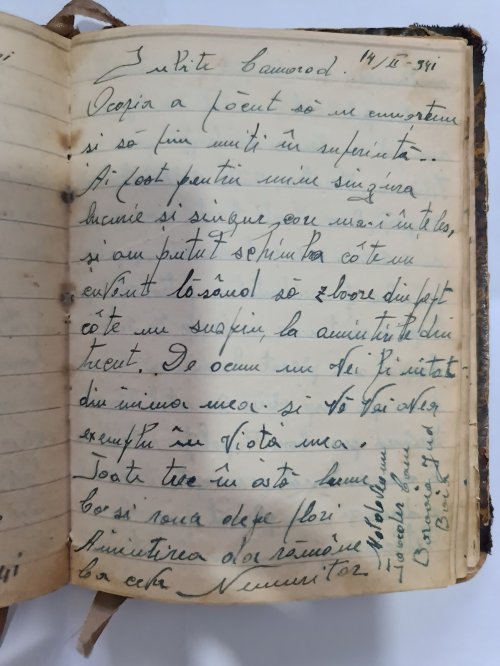 Iubite Camarad. 14/II-941
Ocazia a făcut să ne cunoștem
si să fim uniti în suferintă..
Ai fost pentru mine singura
bucurie si singur care m-a-i înteles,
si am putut schimba câte un
cuvânt lăsând să zboare din pept
câte un suspin, la amintirile din
trecut.. De acum nu vei fi uitat
din inima mea. si Vă Voi avea
exemplu în Viata mea.
Toate trec în astă lume
Ca si roua depe flori
Amintirea dar rămâne
Ca ceva Nemuritor
Moldoveanu
Toader Com
Jud
941